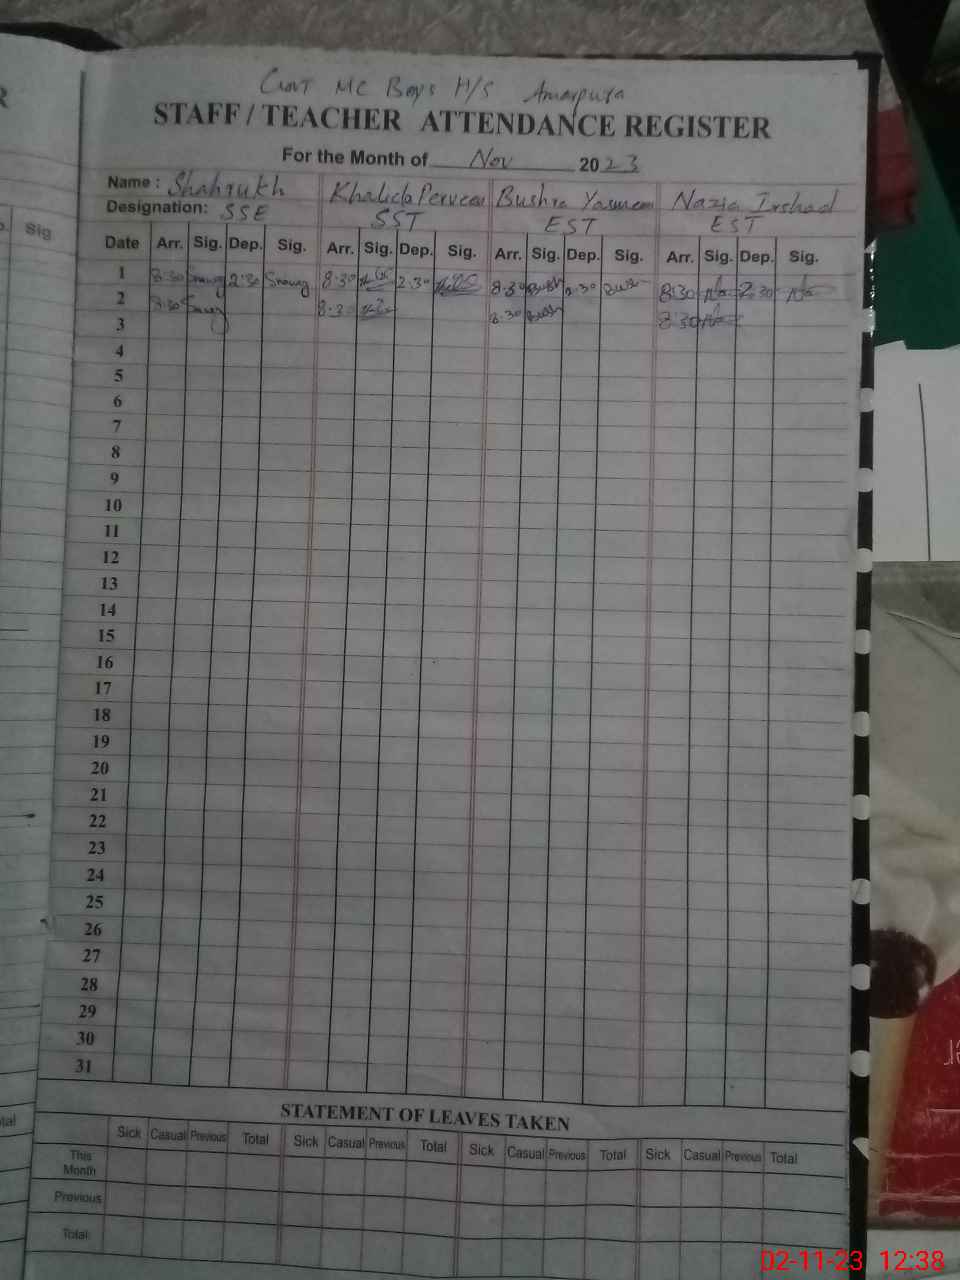 Govt MC Boys H/S Amarpura
STAFF / TEACHER ATTENDANCE REGISTER
For the Month of Nov 2023
Name : Shahrukh Khalida Perveen Bushra Yasmeen Nazia Irshad
Designation: SSE SST EST EST
Sig
Date Arr. Sig. Dep. Sig. Arr. Sig. Dep. Sig. Arr. Sig. Dep. Sig. Arr. Sig. Dep. Sig.
1 8:30 2:30 8:30 2:30 8:30 2:30 8:30 2:30
2 8:30 8:30 8:30 8:30
3
4
5
6
7
8
9
10
11
12
13
14
15
16
17
18
19
20
21
22
23
24
25
26
27
28
29
30
31
STATEMENT OF LEAVES TAKEN
Sick Casual Previous Total Sick Casual Previous Total Sick Casual Previous Total Sick Casual Previous Total
This
Month
Previous
Total
02-11-23 12:38